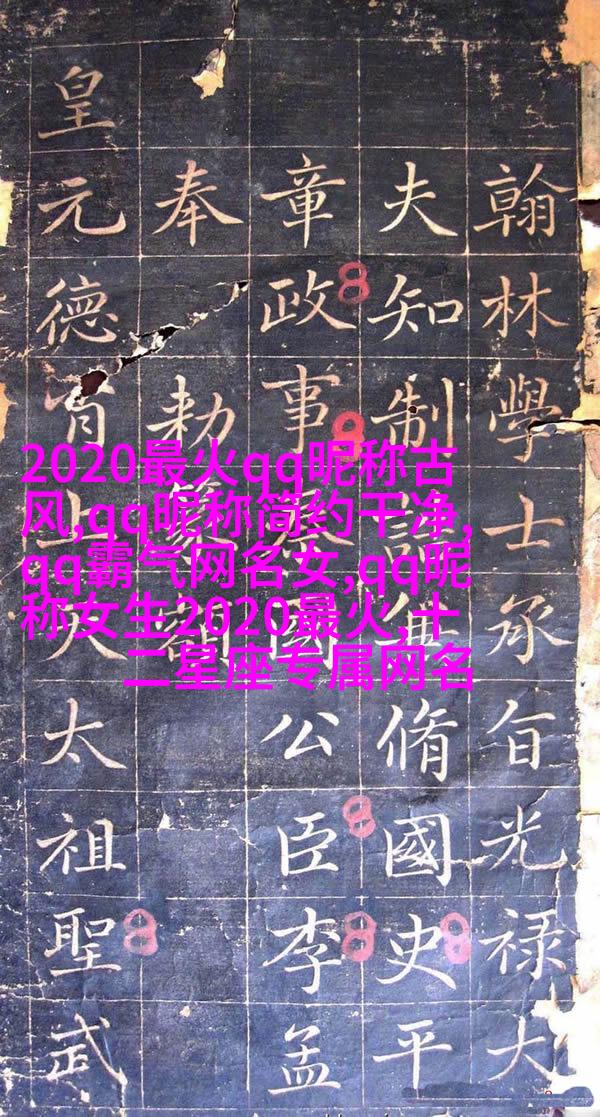 2020最火qq昵称古
风,qq昵称简约干净,
qq霸气网名女,qq昵
称女生2020最火,十
二星座专属网名
翰林學士承旨光禄大
夫知制誥兼脩國史平
章政事公臣李孟
奉勅
皇元德上太祖聖武
8
8
8
8
8
8